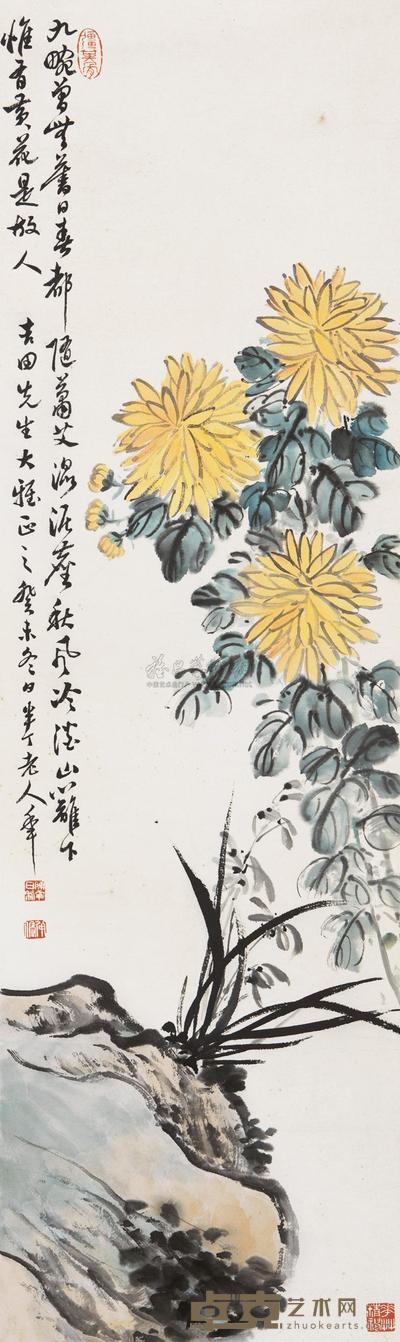 九畹曾無舊日春都隨蕭艾溷泥塵秋風冷淡山籬下
惟有黃花是故人 吉田先生大雅正之癸未冬日半丁老人年
卓克艺术网
zhuokearts.com